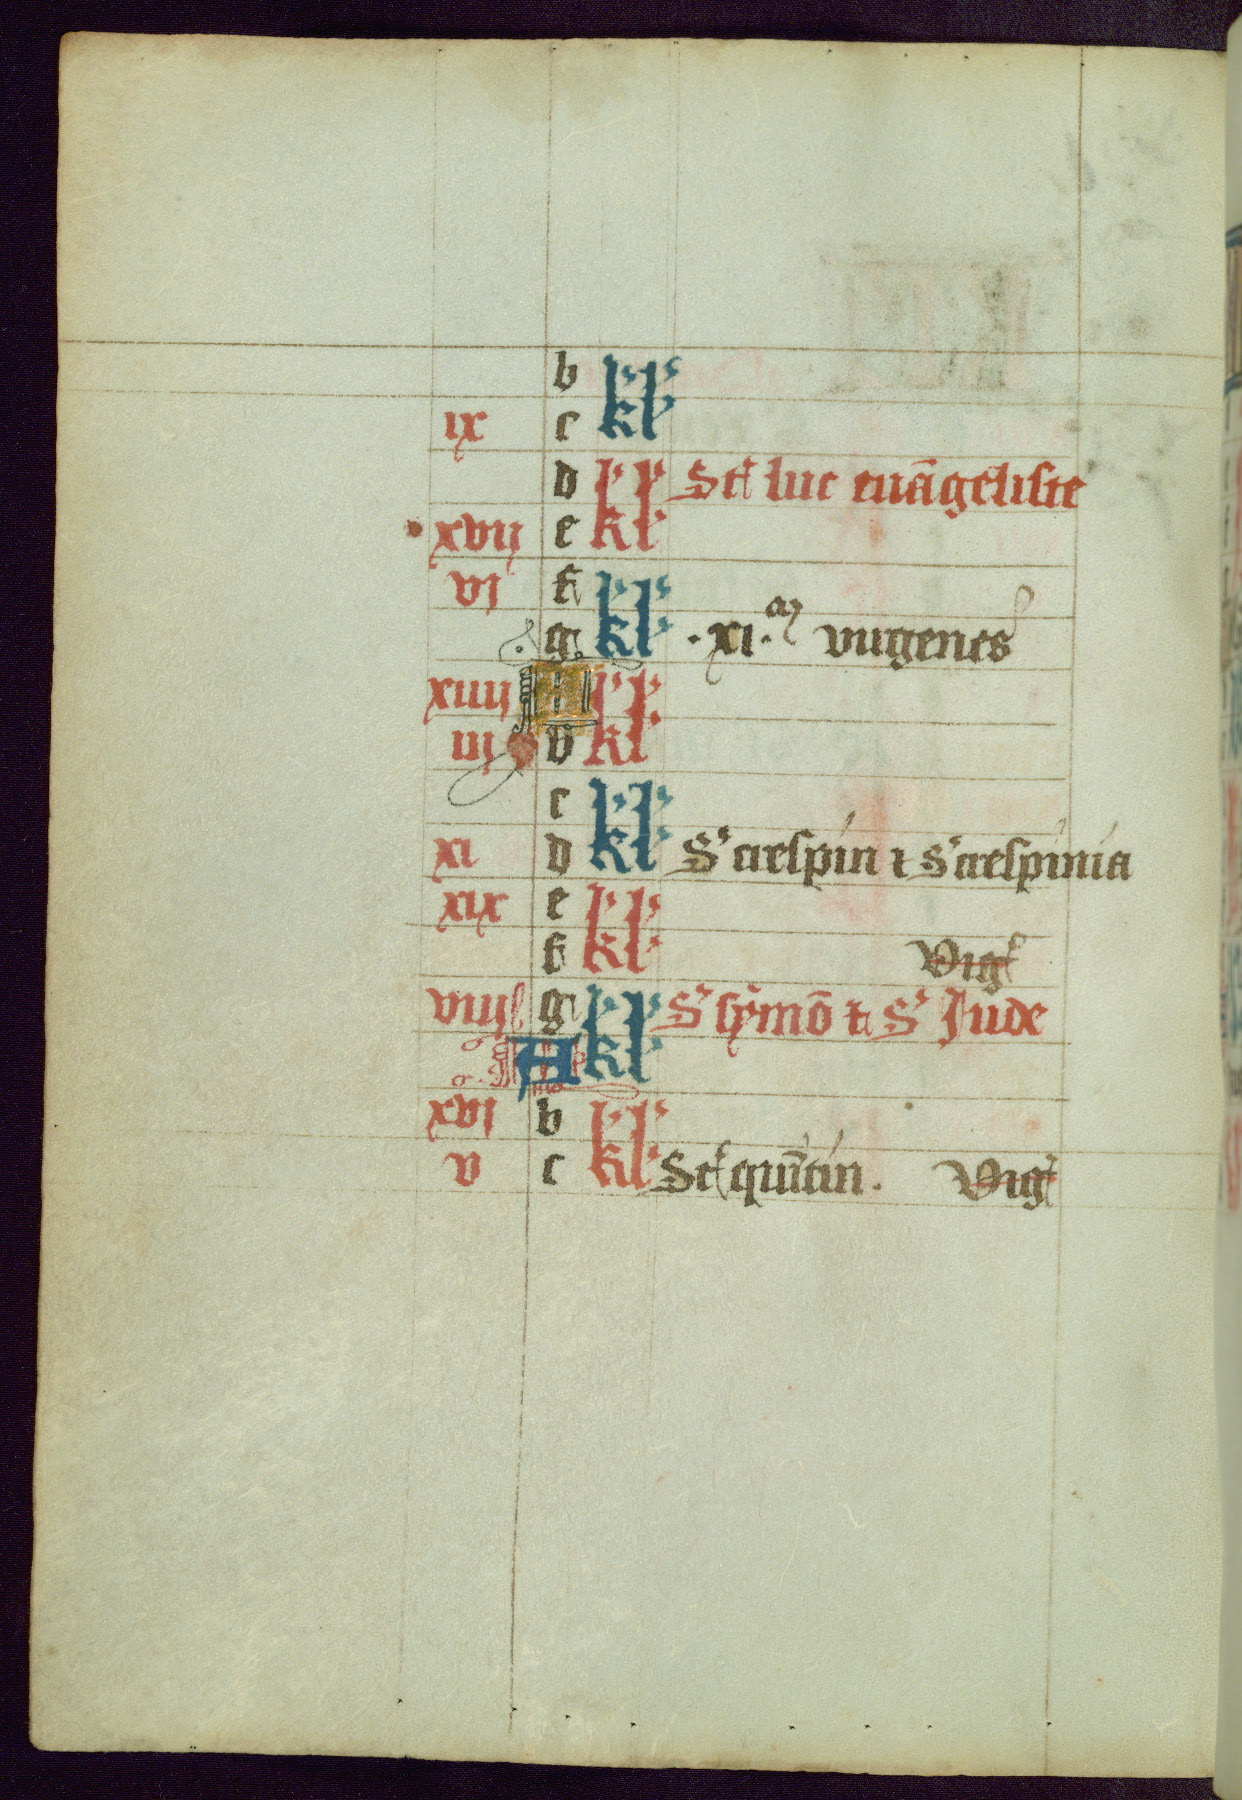 b kl'
ix c kl'
d kl' Sct luc euāgeliste
xvij e kl'
vj f kl'
g kl' .xi.m virgenes
xiiij A kl'
iij b kl'
c kl'
xi d kl' S' crespin ⁊ S' crespinia
xix e kl'
f kl' Vigł
viij g kl' S' symō ⁊ S' Jude
A kl'
xvj b kl'
v c kl' Sct quītin. Vigł